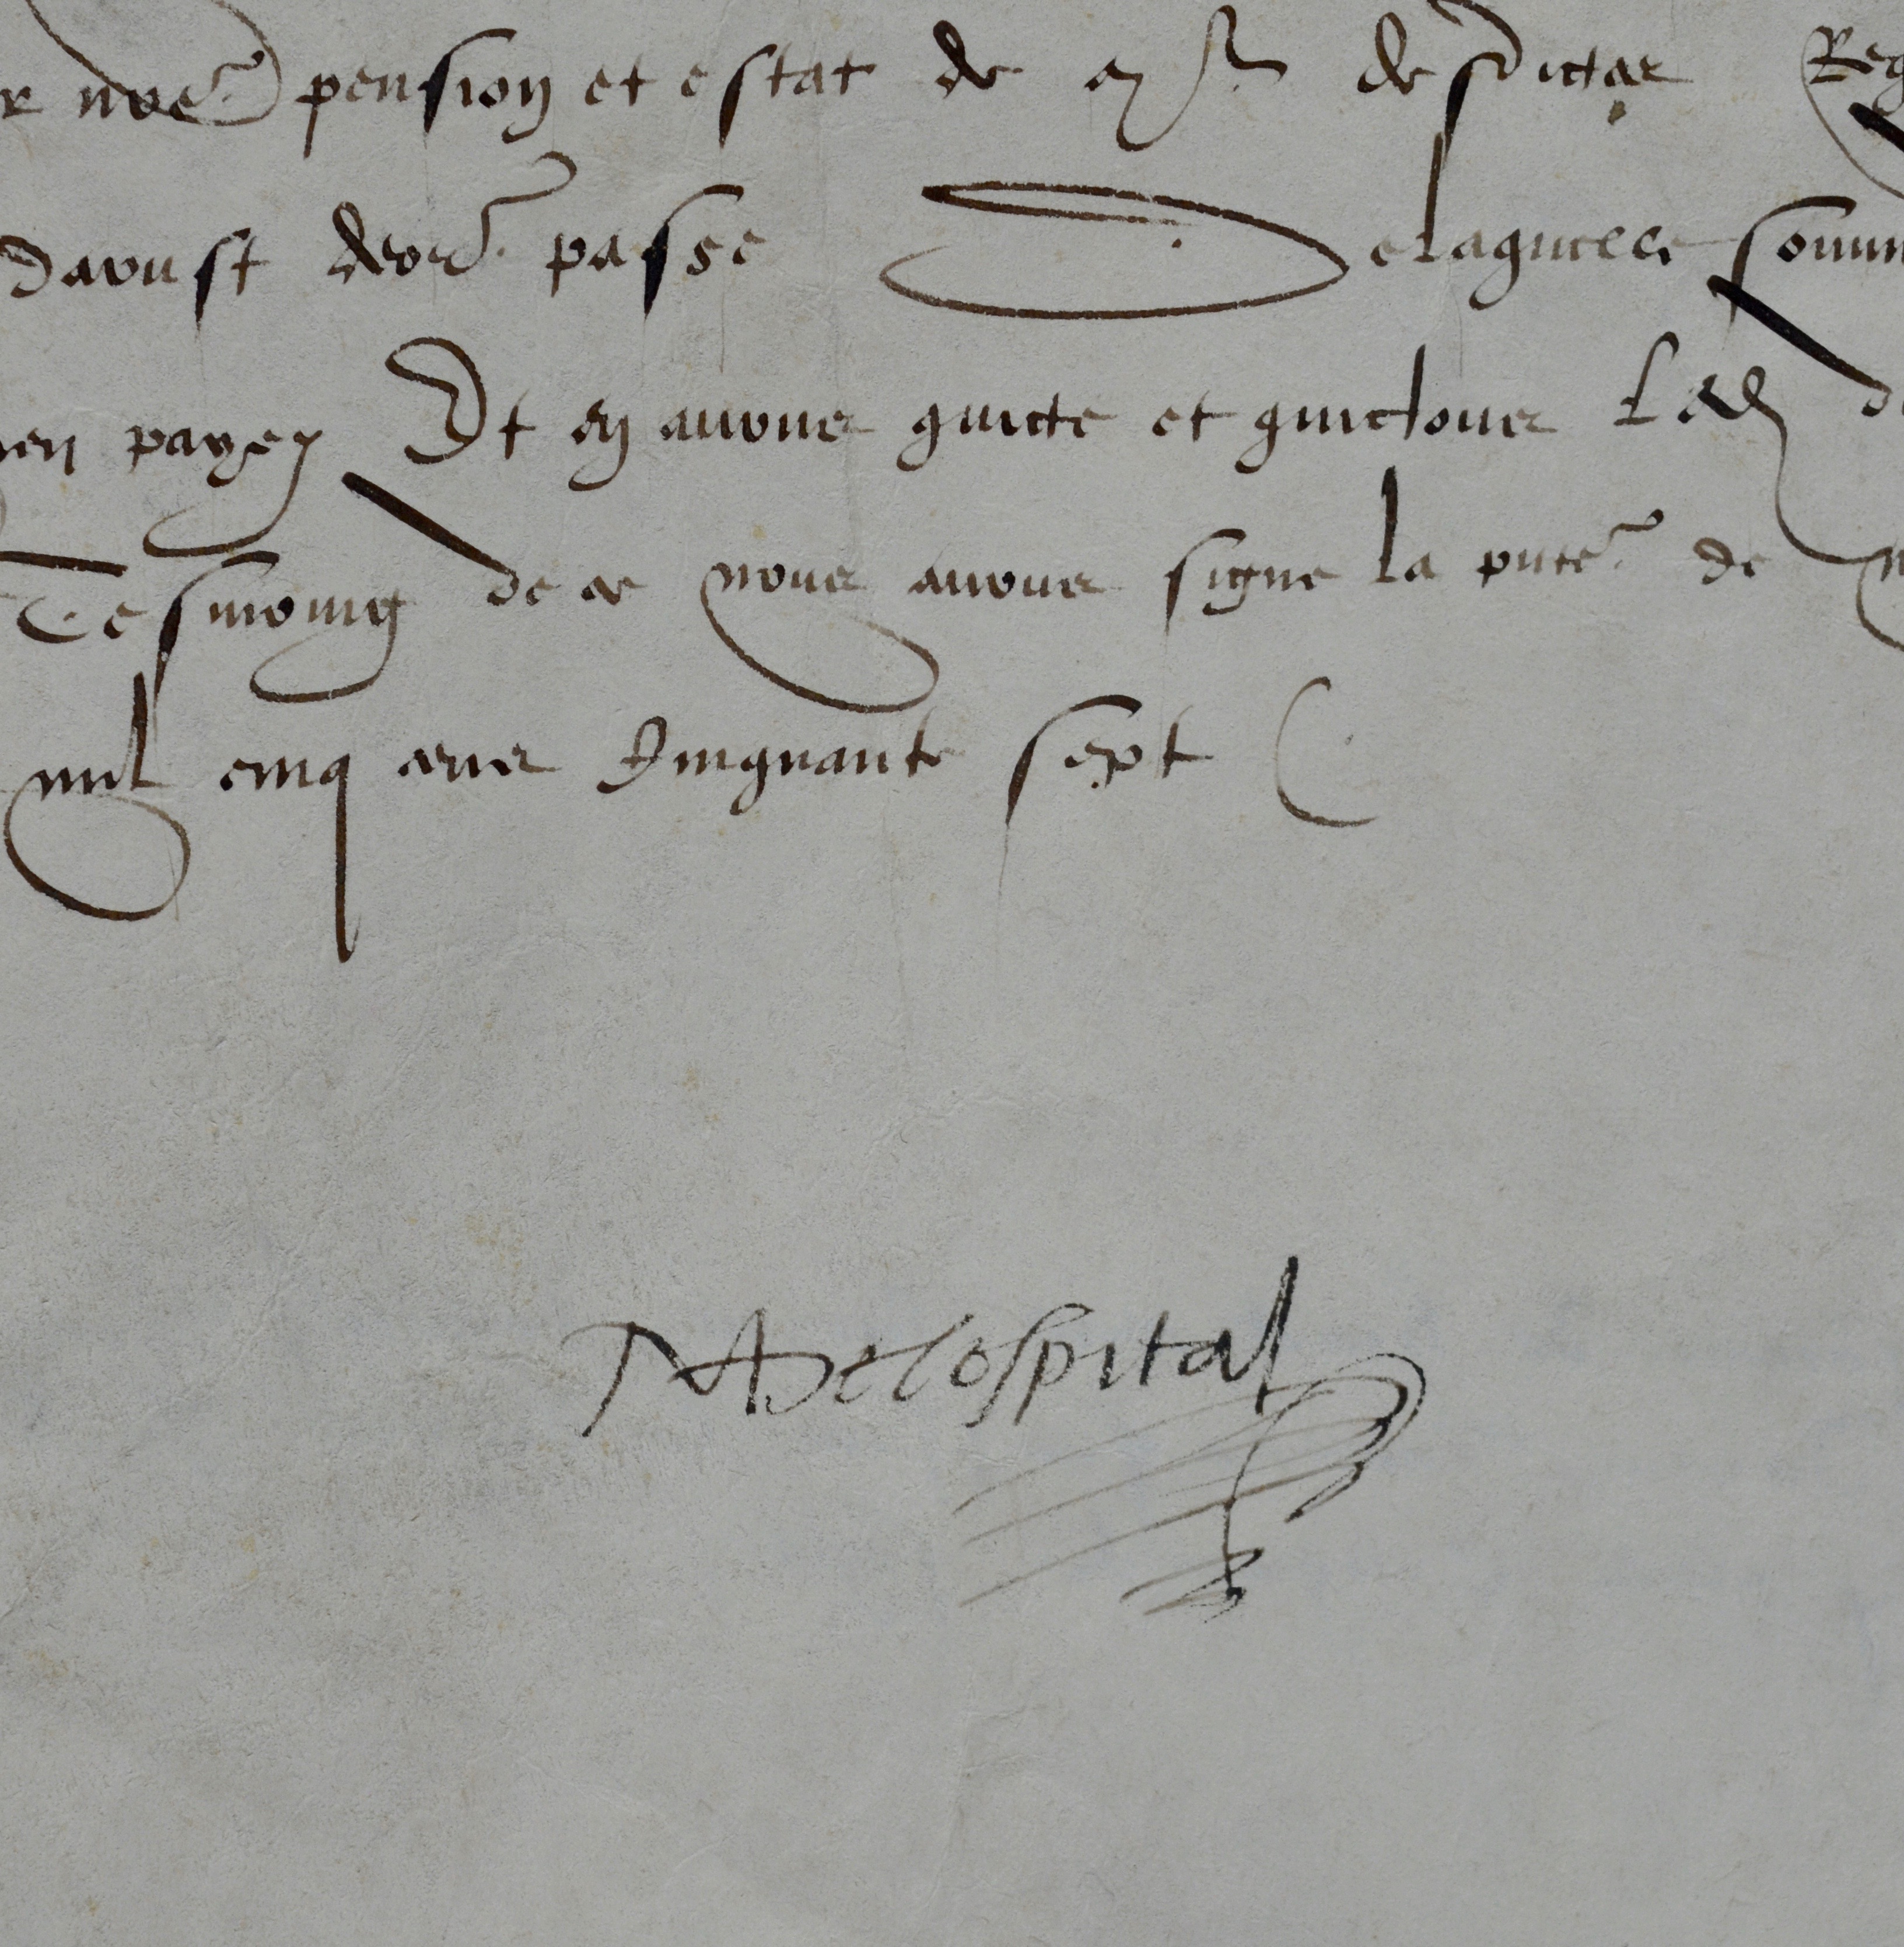 nre pension et estat de desdictes Reg
daoust der passe De laquelle somm
en payez Et en avons quicte et quictons Led
Tesmoing de ce nous avons signe la pnte de
mil cinq cens Cinquante sept
M Delospital